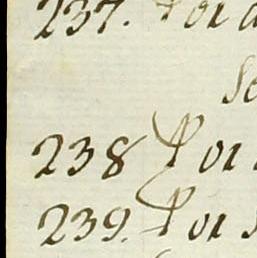 237. For a
Se
238 For
239. For s